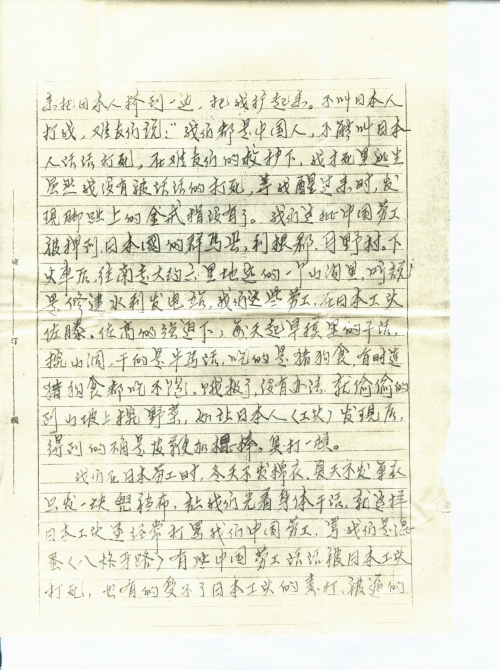 来把日本人挤到一边，把我护起来。不叫日本人
打我，难友们说："我们都是中国人，不能叫日本
人活活打死，在难友们的救护下，我才死里逃生
虽然我没有被活活的打死，等我醒过来时，发
现脚趾上的金戒指没有了。我们这批中国劳工
被押到日本国的群马县，利根郡，月野村。下
火车后，往南走大约六里地远的一个山沟里，听说
是修建水利发电站，我们这些劳工，在日本工头
佐藤。佐高的强迫下，每天起早摸黑的干活，
挖山洞，干的是牛马活，吃的是猪狗食，有时连
猪狗食都吃不饱。饿极了，没有办法，就偷偷的
到山坡上挖野菜，如让日本人（工头）发现后，
得到的不是皮鞭加棍棒，臭打一顿。
我们在日本劳工时，冬天不发棉衣，夏天不发单衣
只发一块 布，让我们光着身体干活，就这样
日本工头还经常打骂我们中国劳工，骂我们是混
蛋（八格牙路）有些中国劳工活活被日本工头
打死，也有的受不了日本工头的毒打，被逼的